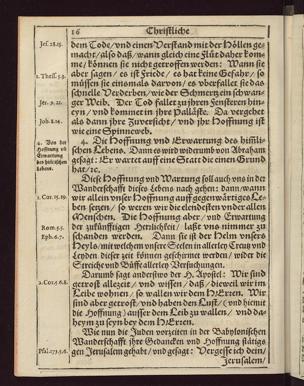 16
Christliche
Jes. 28.15.
dem Tode/ vnd einen Verstand mit der Höllen ge-
macht/ also daß/ wann gleich eine Flüt daher kom-
me/ können sie nicht getroffen werden: Wann sie
aber sagen/ es ist Friede/ es hat keine Gefahr/ so
1. Thess. 5.3.
müssen sie einomals darvon/ es vberfallet sie das
schnelle Verderben/ wie der Schmertz ein schwan-
Jer. 9.21.
ger Weib. Der Tod fallet zu ihren Fenstern hin-
eyn/ vnd kommet in ihre Palläste. Da vergehet
Job. 8.14.
als dann ihre Zuversicht/ vnd ihr Hoffnung ist
wie eine Spinneweb.
4. Von der
Hoffnung vñ
Erwartung
des seligen
Lebens.
4. Die Hoffnung vnd Erwartung des himli-
schen Lebens. Dann es wird widerumb von Abraham
gesagt: Er wartet auff eine Statt die einen Grund
hat/ ꝛc.
Diese Hoffnung vnd Wartung soll auch vns in der
Wanderschafft dieses Lebens nach gehen: dann/ wann
1. Cor. 15.19.
wir allein vnser Hoffnung auff gegenwärtiges Le-
ben setzen/ so weren wir die elendesten vnder allen
Menschen. Die Hoffnung aber/ vnd Erwartung
Rom. 5.5.
der zukünfftigen Herrlichkeit/ laßt vns nimmer zu
Eph. 6.7.
schanden werden. Dann sie ist der Helm vnsers
Heyls/ mit welchem vnsere Seelen in allerley Creutz vnd
Leyden dieser zeit können geschirmet werden/ wider die
Streiche vnd Püffe allerley Versuchungen.
2. Cor. 5.6.8.
Darumb sagt anderswo der H. Apostel: Wir sind
getrost allezeit/ vnd wissen/ daß/ dieweil wir im
Leibe wohnen/ so wallen wir dem HErren. Wir
sind aber getrost/ vnd haben den Lust/ (vnd hiemit
die Hoffnung) ausser dem Leib zu wallen/ vnd da-
heym zu seyn bey dem HErren.
Wie nun die Juden vorzeiten in der Babylonischen
Wanderschafft ihre Gedancken vnd Hoffnung stätigs
Psal. 137.5.6.
gen Jerusalem gehabt/ vnd gesagt: Vergesse ich dein/
Jerusalem/